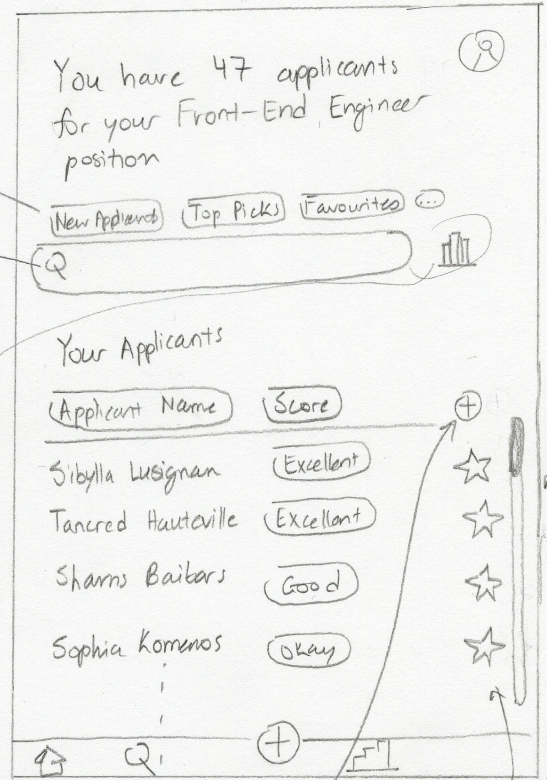 You have 47 applicants
for your Front-End Engineer
position
New Applicants Top Picks Favourites ...
Your Applicants
Applicant Name Score
Sibylla Lusignan Excellent
Tancred Hauteville Excellent
Shams Baibars Good
Sophia Komenos Okay